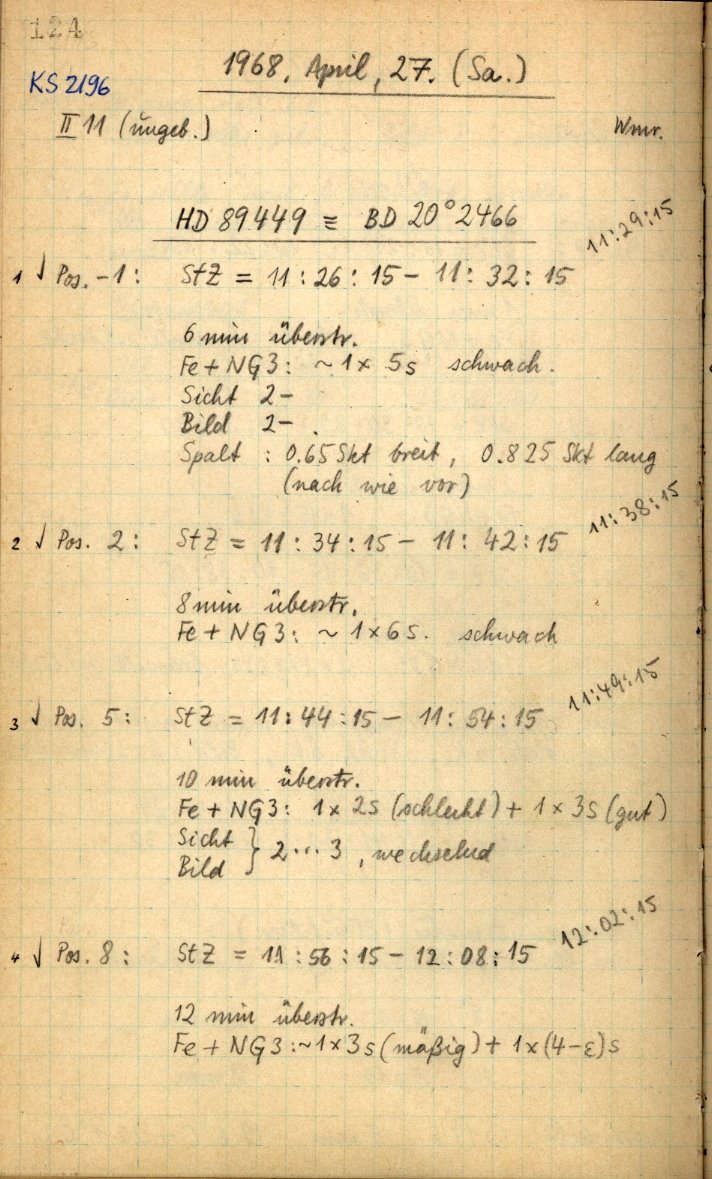 124
1968, April, 27. (Sa.)
KS 2196
II 11 (ungeb.) Wmr.
HD 89449 ≡ BD 20° 2466
11:29:15
1 √ Pos. -1: StZ = 11:26:15 - 11:32:15
6 min überstr.
Fe + NG3: ~ 1 x 5s schwach.
Sicht 2-
Bild 2-.
Spalt: 0.65 Skt breit, 0.825 Skt lang
(nach wie vor)
11:38:15
2 √ Pos. 2: StZ = 11:34:15 - 11:42:15
8 min überstr.
Fe + NG3: ~ 1 x 6s. schwach
11:49:15
3 √ Pos. 5: StZ = 11:44:15 - 11:54:15
10 min überstr.
Fe + NG3: 1 x 2s (schlecht) + 1 x 3s (gut)
Sicht
Bild } 2...3, wechselnd
12:02:15
4 √ Pos. 8: StZ = 11:56:15 - 12:08:15
12 min überstr.
Fe + NG3: ~ 1 x 3s (mäßig) + 1 x (4-ε)s